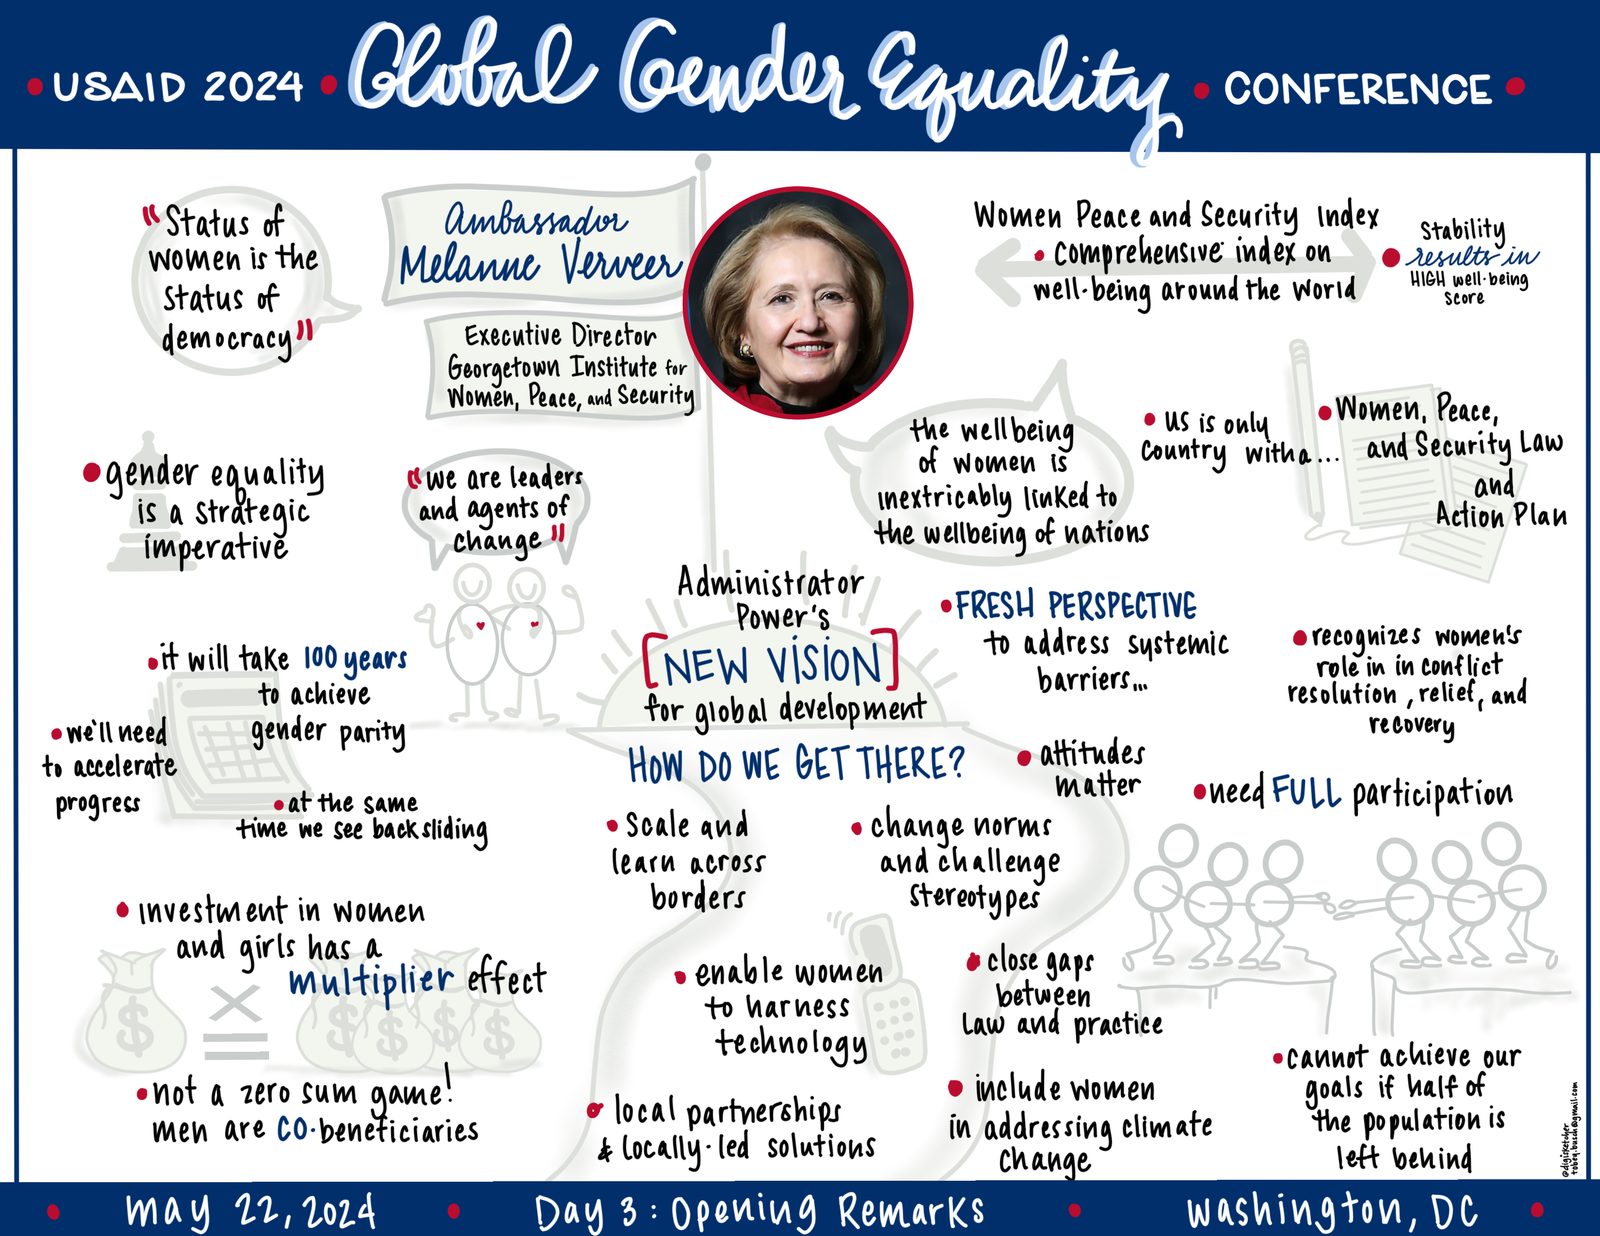 • USAID 2024 • Global Gender Equality • CONFERENCE •
"Status of
women is the
status of
democracy"
Ambassador
Melanne Verveer
Executive Director
Georgetown Institute for
Women, Peace, and Security
Women Peace and Security Index
• comprehensive index on
well-being around the world
• Stability
results in
HIGH well-being
score
• gender equality
is a strategic
imperative
"we are leaders
and agents of
change"
the wellbeing
of women is
inextricably linked to
the wellbeing of nations
• US is only
country with a...
• Women, Peace,
and Security Law
and
Action Plan
Administrator
Power's
[NEW VISION]
for global development
• FRESH PERSPECTIVE
to address systemic
barriers...
• recognizes women's
role in in conflict
resolution, relief, and
recovery
• it will take 100 years
to achieve
gender parity
• we'll need
to accelerate
progress
• at the same
time we see backsliding
HOW DO WE GET THERE?
• attitudes
matter
• need FULL participation
• Scale and
learn across
borders
• change norms
and challenge
stereotypes
• investment in women
and girls has a
multiplier effect
$ X = $ $ $ $
• enable women
to harness
technology
• close gaps
between
law and practice
• not a zero sum game!
men are CO-beneficiaries
• local partnerships
& locally-led solutions
• include women
in addressing climate
change
• cannot achieve our
goals if half of
the population is
left behind
@digisketcher
tobey.busch@gmail.com
• may 22, 2024 • Day 3: Opening Remarks • Washington, DC •